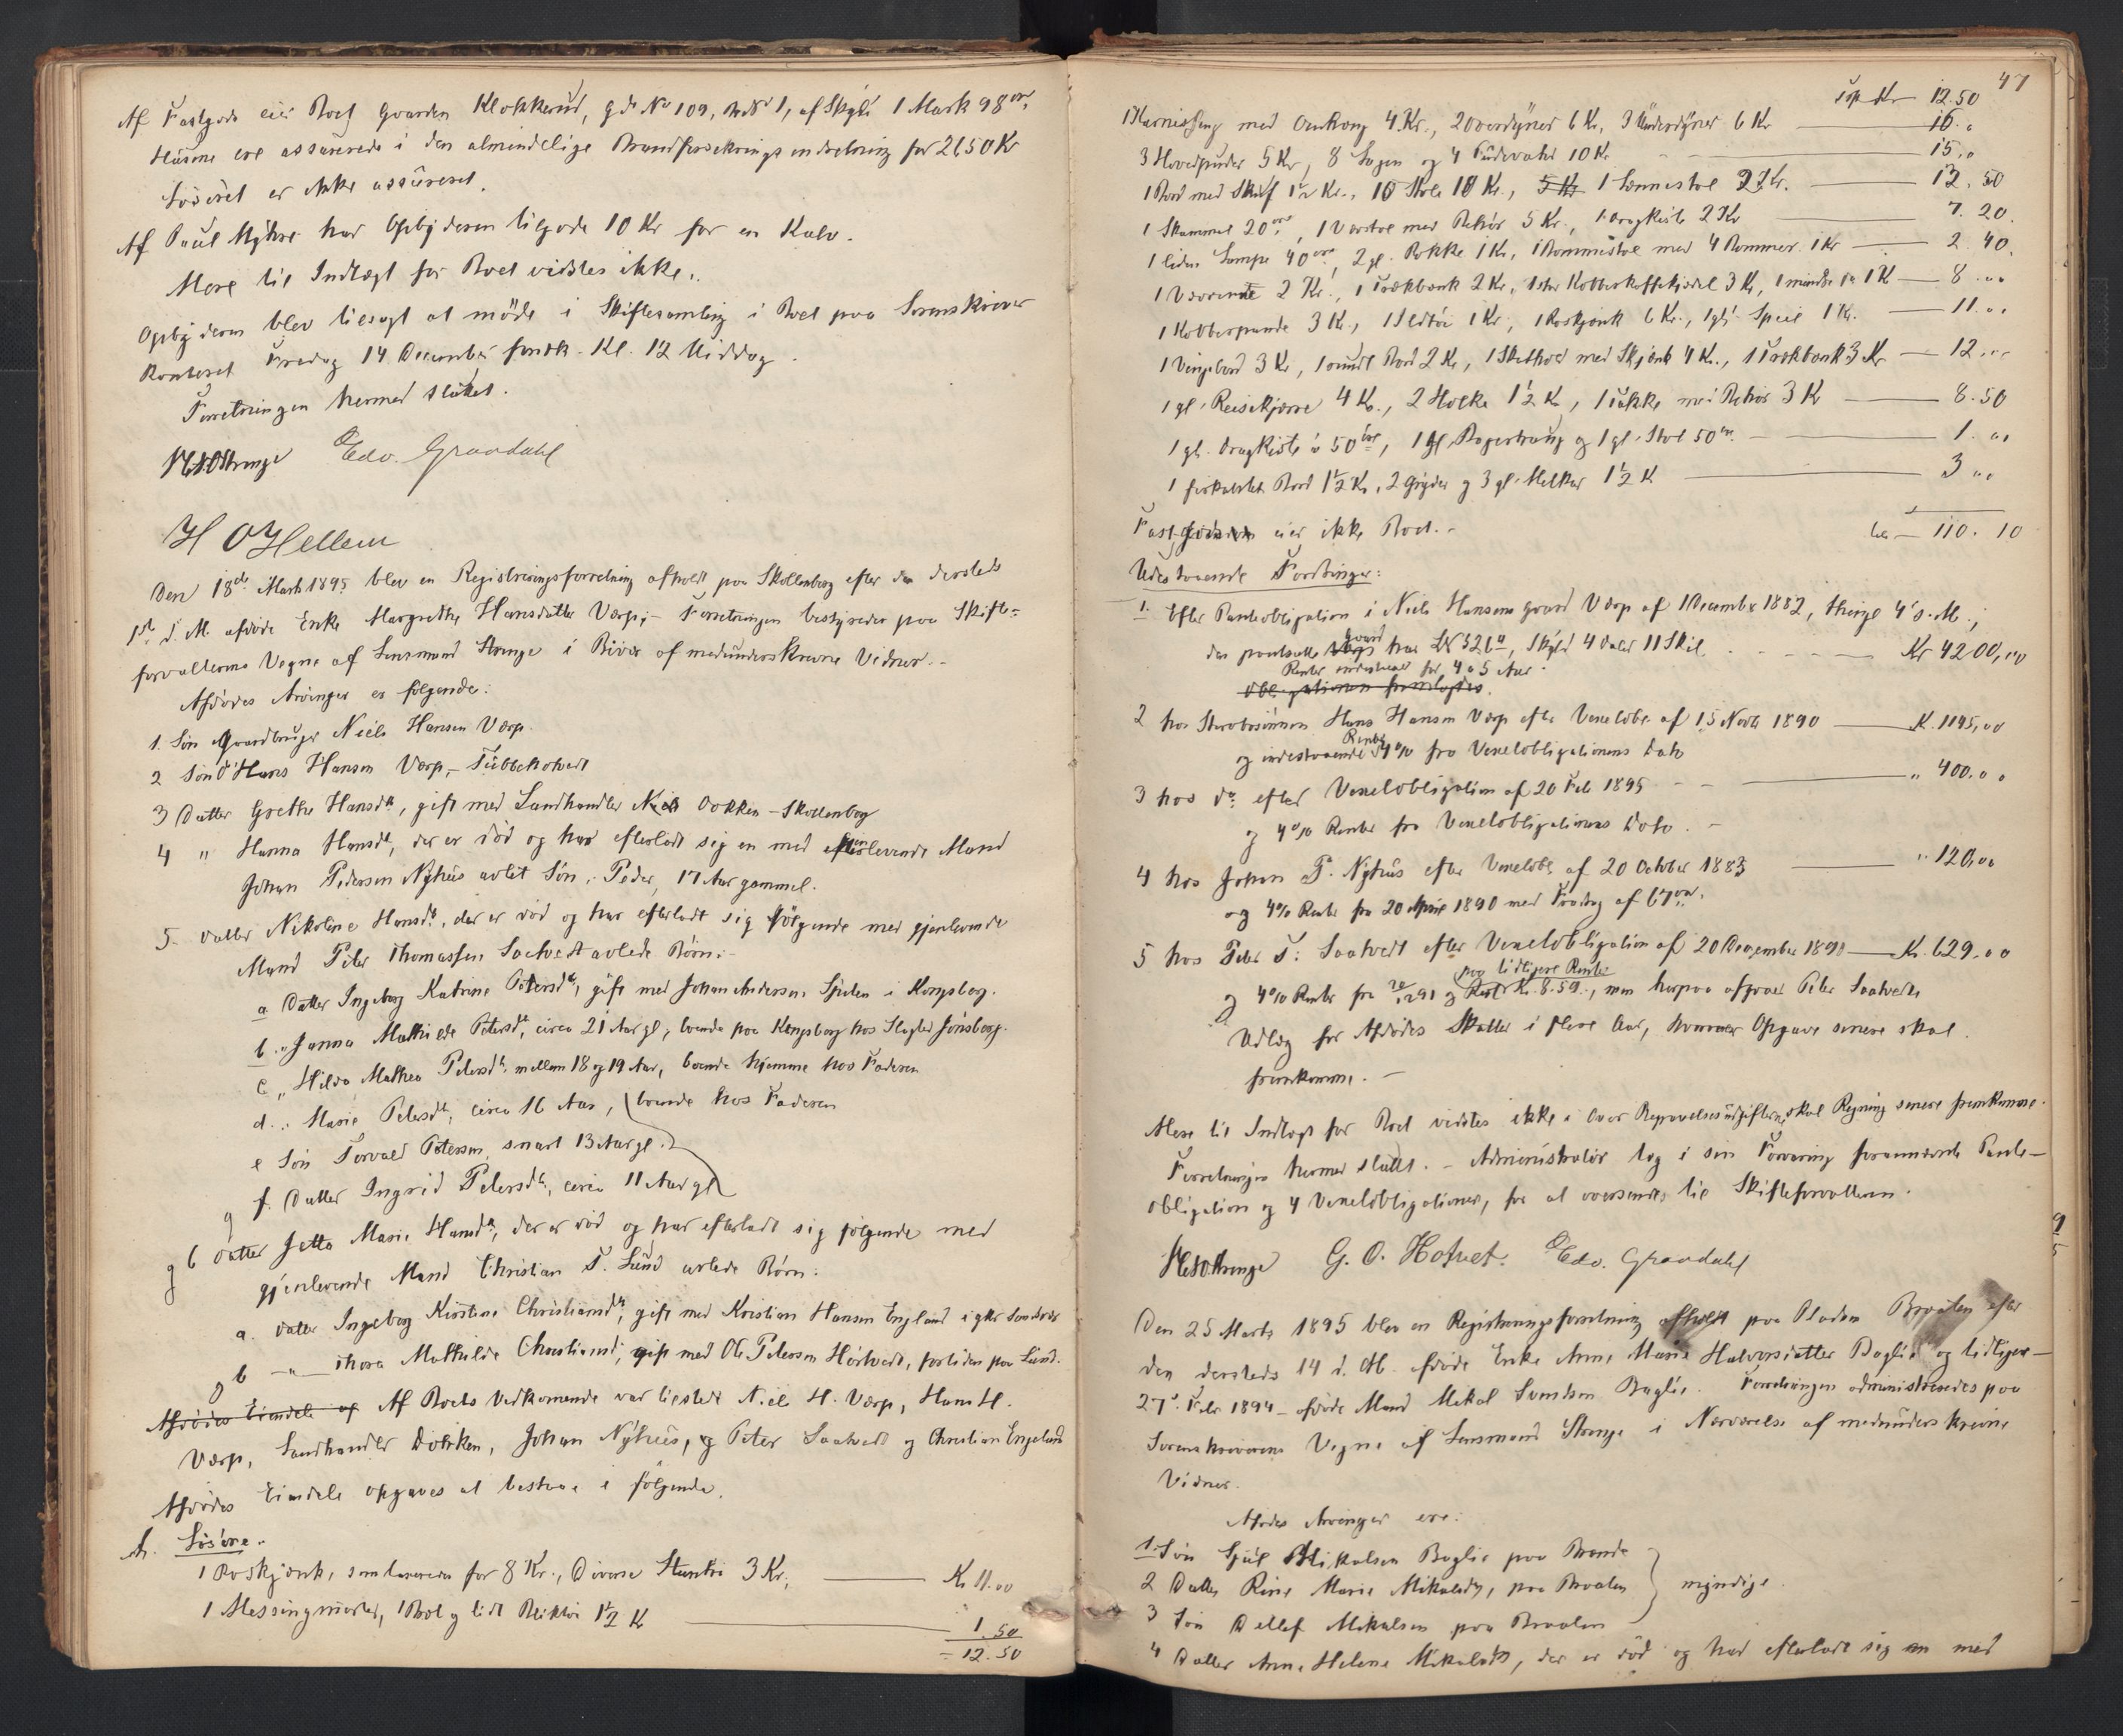 Af Fastgods eier Boet Gaarden Klokkerud, gds No 109, Brs No 1, af Skyld 1 Mark 98 øre,
Husene ere assurerede i den almindelige Brandforsikringsindretning for 2650 Kr
Løsøret er ikke assureret.
Af Paul Myhre har Opbyderen tilgode 10 Kr for en Kalv.
Mere til Indtægt for Boet vidstes ikke.
Opbyderen blev tilsagt at møde i Skiftesamling i Boet paa Sorenskriver
kontoret Fredag 14 December førstk. Kl. 12 Middag.
Forretningen hermed sluttet.
Edv. Graadahl
H O Hellem
Den 18de Marts 1895 blev en Registreringsforretning afholdt paa Skollenborg efter den dersteds
1ste d. M. afdøde Enke Margrethe Hansdatter Værp; – Forretningen bestyredes paa Skifte=
forvalterens Vegne af Lensmand Strenge i Biv. af medunderskrevne Vidner. –
Afdødes Arvinger er følgende:
1. Søn Gaardbruger Niels Hansen Værp.
2 Søn Hans Hansen Værp, – Tubbehotvedt
3 Datter Grethe Hansdtr, gift med Landhandler Niels Dokken – Skollenborg
4 " Hanna Hansdtr, der er død og har efterladt sig en med efterlevende Mand
Johan Pedersen Nyhus avlet Søn, Peder, 17 Aar gammel.
5. Datter Nikoline Hansdtr, der er død og har efterladt sig følgende med gjenlevende
Mand Peter Thomassen Saatvedt avlede Børn: –
a Datter Ingeborg Katrine Petersdtr, gift med Johan Andersen i Kongsberg.
b. " Janna Mathilde Petersdtr, circa 21 Aar gl, boende paa Kongsberg hos Slagter Jønsberg.
c " Hilda Mathea Petersdtr, mellem 18 og 19 Aar, boende hjemme hos Faderen
d. " Marie Petersdtr, circa 16 Aar, boende hos Faderen
e Søn Torvald Petersen, snart 13 Aar gl.
f. Datter Ingrid Petersdtr, circa 11 Aar gl
6 Datter Jette Marie Hansdtr, der er død og har efterladt sig følgende med
gjenlevende Mand Christian T. Lund avlede Børn:
a. Datter Ingeborg Kirstine Christiansdtr, gift med Kristian Hansen England i
b — " — Thora Mathilde Christiansdtr, gift med Ole Petersen Hostvedt, fortiden paa Lund.
Afdødes Eiendele af Af Boets Vedkomende var tilstede Niels H. Værp, Hans H.
Værp, Landhandler Dokken, Johan Nyhus, og Peter Saatvedt og Christian Engeland
Afdødes Eiendele opgaves at bestaa i følgende.
A. Løsøre.
1 Roskjænk, som taxeredes for 8 Kr., Diverse Stentøi 3 Kr, — Kr 11.00
1 Messingmorter, 1 Bol og lidt Bliktøi 1½ Kr — 1.50
= 12.50
47
Trsp. Kr 12.50
med Omhæng 4 Kr., 2 Overdyner 6 Kr, 3 Underdyner 6 Kr — 16. "
3 Hovedpuder 5 Kr, 8 Lagen og 4 Pudevahr 10 Kr. — 15. "
1 Bord med Skuf 1½ Kr., 10 Stole 10 Kr., 5 Kr 1 Lænnestol 2 Kr. — 13.50
1 Skammel 20 øre, 1 Vævstol med Behør 5 Kr., 1 Dragkiste 2 Kr — 7.20.
1 liden Lampe 40 øre, 2 gl. Rokke 1 Kr, 1 Trommestol med 4 Trommer 1 Kr — 2.40.
1 2 Kr., 1 Trækbænk 2 Kr, 1 stor Kobberkaffekjedel 3 Kr, 1 mindre do 1 K — 8. "
1 Kobberpande 3 Kr., 1 Ildtøi 1 Kr, 1 Roskjænk 6 Kr., 1 gl. Speil 1 Kr. — 11. "
1 Vingebord 3 Kr, 1 rundt Bord 2 Kr, 1 med Skjænk 4 Kr., 1 Trækbænk 3 Kr — 12. "
1 gl. Reisekjærre 4 Kr., 2 Holke 1½ Kr, 1 med Behør 3 Kr — 8.50
1 gl. Dragkiste à 50 øre, 1 gl. og 1 gl. Stol 50 øre. — 1. "
1 firkantet Bord 1½ Kr., 2 Gryder og 3 gl. Melkar 1½ K — 3 "
Fastgods eier ikke Boet. –
110.10
Udestaaende Fordringer:
1. Efter Panteobligation i Niels Hansens Gaard Værp af 1 December 1882, thingl 4 s. M.;
den pantsatte Gaard har LN 326a, Skyld 4 Daler 11 Skil — Kr 4200,00
Renter indestaaende for 4 a 5 Aar.
Obligationen fremlagdes.
2 hos Strvbosønnen Hans Hansen Værp efter Vexelobl. af 15 Novb 1890 — K. 1145,00
og indestaaende Rente 4% fra Vexelobligationens Dato
3 hos do efter Vexelobligation af 20 Feb 1895 — " 400.00
og 4% Renter fra Vexelobligationens Dato. –
4 hos Johan P. Nyhus efter Vexelobl. af 20 October 1883 — " 120,00
og 4% Rente fra 20 April 1890 med Fradrag af 67 øre.
5 hos Peter T. Saatvedt efter Vexelobligation af 20 December 1890 — Kr. 629.00
og 4% Renter fra 20/12 91 og Rest paa tidligere Renter Kr. 8.59., men herpaa afgaaer Peter Saatvedts
Udlæg for Afdødes Skatter i flere Aar, hvorover Opgave senere skal
fremkomme. –
Mere til Indtægt for Boet vidstes ikke. Over Begravelsesudgifterne skal Regning senere fremkomme.
Forretningen hermed sluttet. – Administrator tog i sin Forvaring forannævnte Pante–
obligation og 4 Vexelobligationer, for at oversendes til Skifteforvalteren.
G. O. Hotvet. Edv. Graadahl
Den 25 Marts 1895 blev en Registreringsforretning afholdt paa Pladsen Braaten efter
den dersteds 14 d. M. afdøde Enke Anne Marie Halvorsdatter Baglie og tidligere –
27de Febr 1894 – afdøde Mand Mikal Baglie. Forretningen administreredes paa
Sorenskriverens Vegne af Lensmand Strenge i Nærværelse af medunderskrevne
Vidner.
Afdødes Arvinger ere:
1. Søn Mikalsen Baglie paa
2 Datter Marie Mikalsdtr, paa Braaten myndige.
3 Søn Detlef Mikalsen paa Braaten
4 Datter Anne Helene Mikalsdtr, der er død og har efterladt sig en med